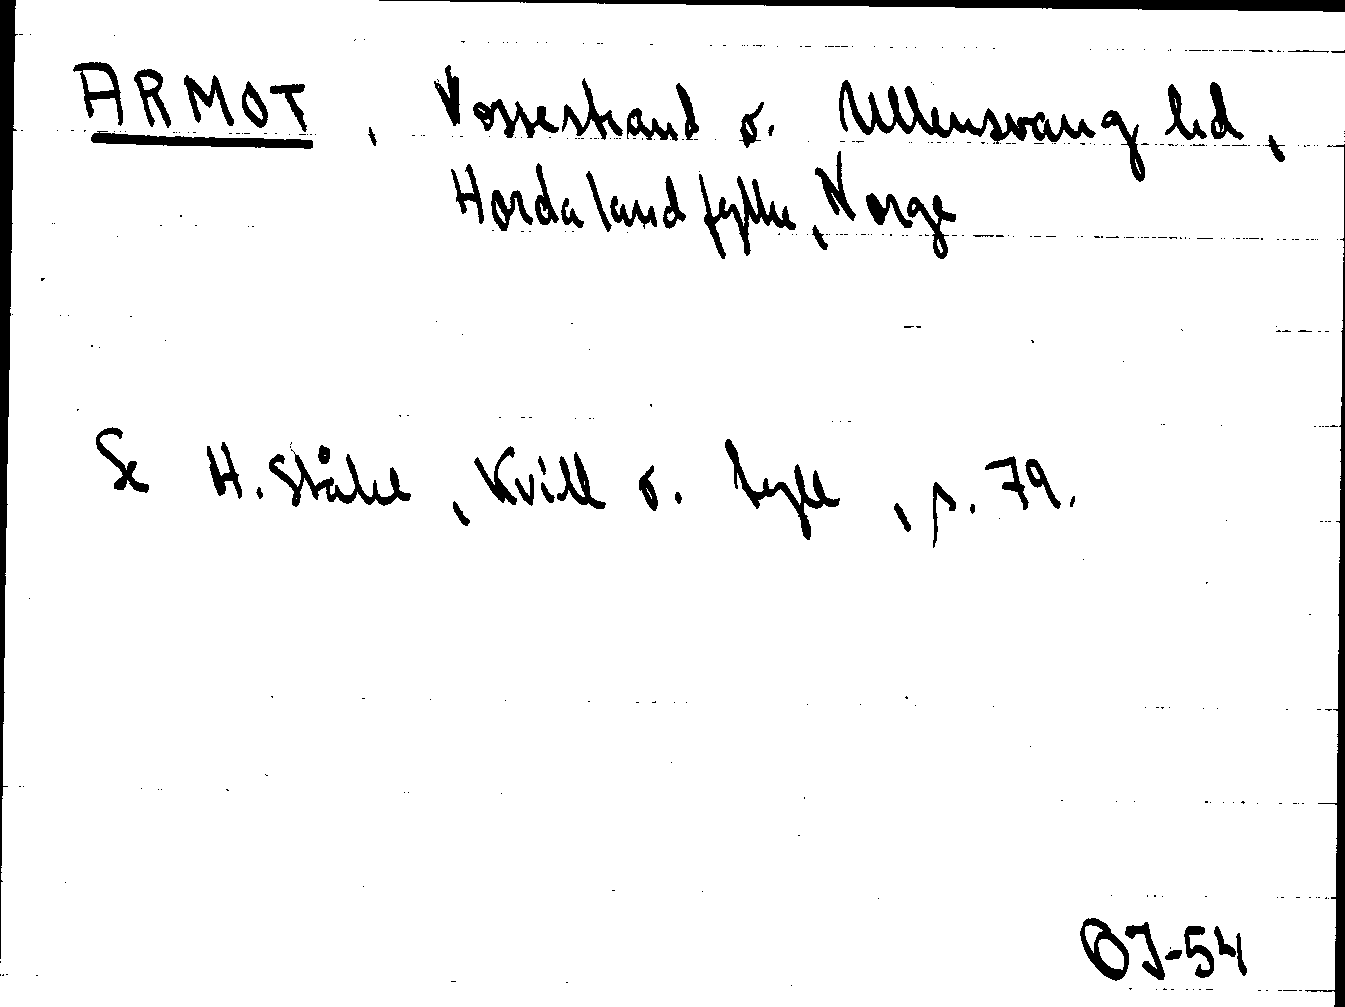 ARMOT, Vossestrand o. Ullensvang hd,
Hordaland fylke, Norge
Se H. Ståhl, Kvill o. tyll, p. 79.
OJ-54